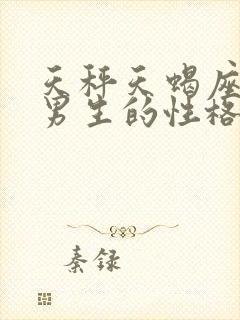 天秤天蝎座
男生的性格
秦录